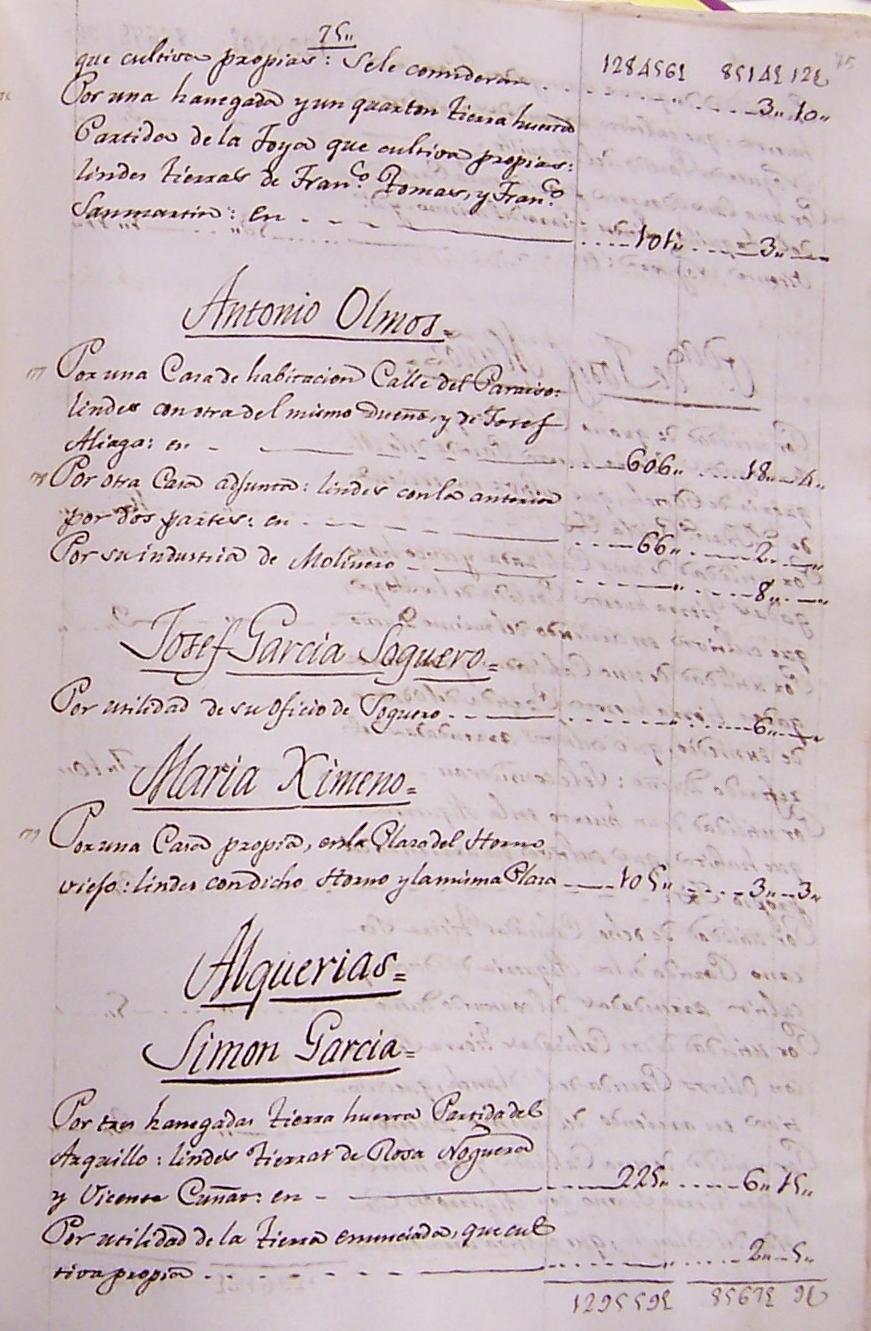 75"
que cultiva propias: Sele consideran . . . 128456£ 8514£ 12£
. . . " . . . 3" 10"
Por una hanegada y un quarton tierra huerta
Partida de la Foya que cultiva propias:
lindes tierras de Franco. Tomas, y Franco.
Sanmartin: en - - - 101" . . . 3" —"
Antonio Olmos=
177 Por una Casa de habitacion Calle del Paraiso:
lindes con otra del mismo dueño, y de Josef
Aliaga: en - — 606" . . . 18" 4"
178 Por otra Casa adjunta: lindes con la anterior
por dos partes: en - - - 66" . . . 2" —"
Por su industria de Molinero - — " . . . 8" —"
Josef Garcia Soguero=
Por utilidad de su Oficio de Soguero . . — . . . 6" —"
Maria Ximeno=
179 Por una Casa propia, en la Plaza del Horno
viejo: lindes con dicho Horno y la misma Plaza — 105" . . . 3" 3"
Alquerias=
Simon Garcia=
Por tres hanegadas tierra huerta Partida del
Arquillo: lindes tierras de Rosa Noguera
y Vicente Cuñat: en - — 225" . . . 6" 15"
Por utilidad de la tierra enunciada, que cul
tiva propia . . . — " . . . 2" 5"
129559£ 8567£ 9£